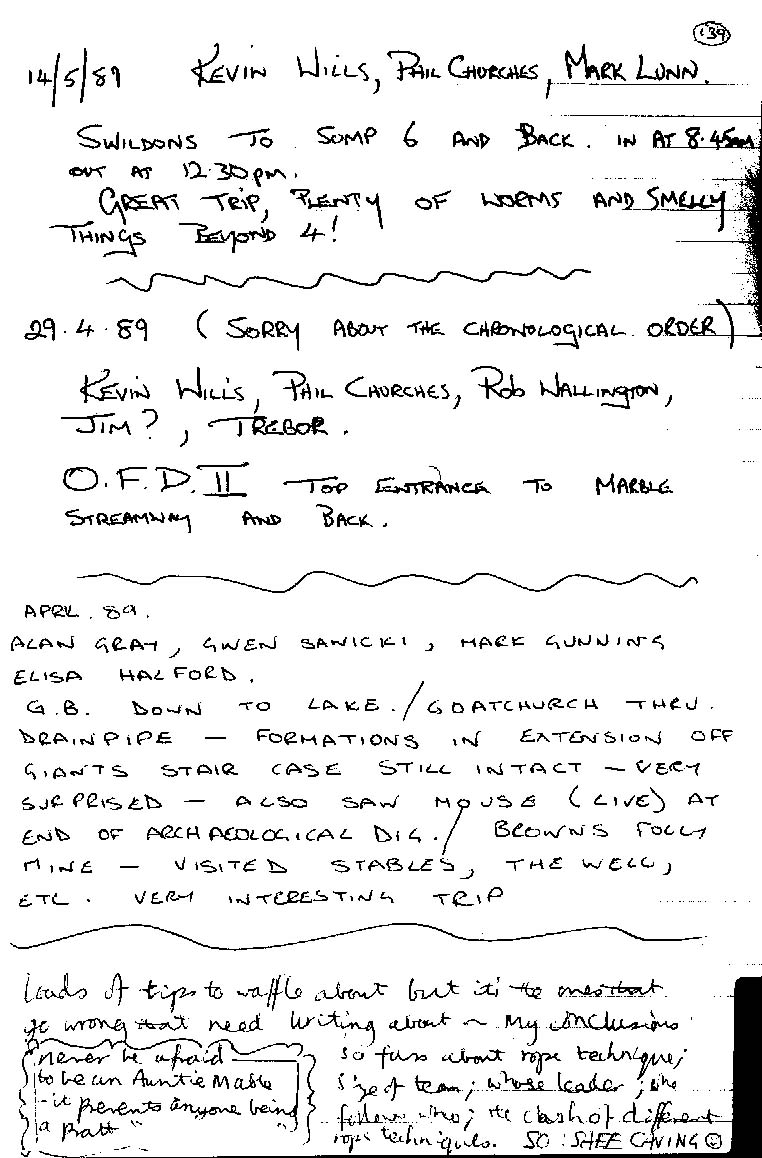 139
14/5/89 KEVIN WILLS, PHIL CHURCHES, MARK LUNN.
SWILDONS TO SUMP 6 AND BACK. IN AT 8.45am
OUT AT 12.30pm.
GREAT TRIP, PLENTY OF WORMS AND SMELLY
THINGS BEYOND 4!
29.4.89 (SORRY ABOUT THE CHRONOLOGICAL ORDER)
KEVIN WILLS, PHIL CHURCHES, ROB WALLINGTON,
JIM?, TREBOR.
O.F.D. II TOP ENTRANCE TO MARBLE
STREAMWAY AND BACK.
APRIL. 89.
ALAN GRAY, GWEN SANICKI, MARK GUNNING
ELISA HALFORD.
G.B. DOWN TO LAKE. / GOATCHURCH THRU.
DRAINPIPE - FORMATIONS IN EXTENSION OFF
GIANTS STAIR CASE STILL INTACT - VERY
SURPRISED - ALSO SAW MOUSE (LIVE) AT
END OF ARCHAEOLOGICAL DIG. / BROWNS FOLLY
MINE - VISITED STABLES, THE WELL,
ETC. VERY INTERESTING TRIP
Loads of tips to waffle about but it's the ones that
go wrong that need writing about ~ My conclusions
so far about rope technique;
size of team; whose leader; who
follows who; the clash of different
rope techniques. SO :SHEE CAVING
never be afraid
to be an Auntie Mable
- it prevents anyone being
a Pratt "